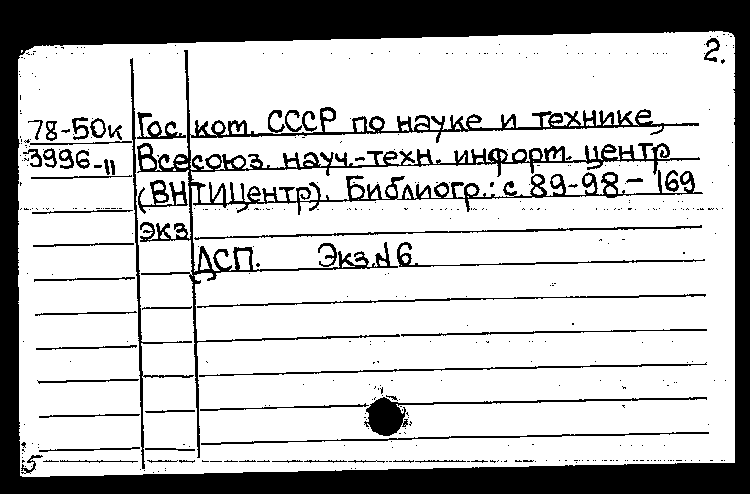 2.
78-50к Гос. кот. СССР по науке и технике,
3996-11 Всесоюз. науч.-техн. инфорт. центр
(ВНТИЦентр). Библиогр.: с. 89-98. - 169
экз
ДСП. Экз.N6.
5